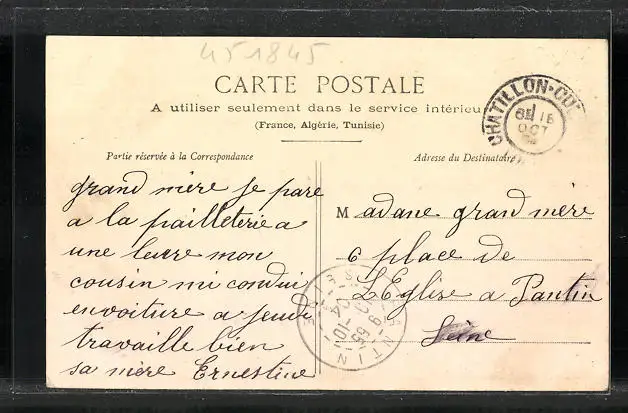 451845
CARTE POSTALE
A utiliser seulement dans le service intérieur
(France, Algérie, Tunisie)
CHATILLON-CO
8E 16
OCT
Partie réservée à la Correspondance
grand mère je pare
a la pailleterie a
une leure mon
cousin mi condui
envoiture a jeudi
travaille bien
sa mère Ernestine
Adresse du Destinataire
Madane grand mère
6 place de
L'Eglise a Pantin
Seine
PANTIN
SEINE